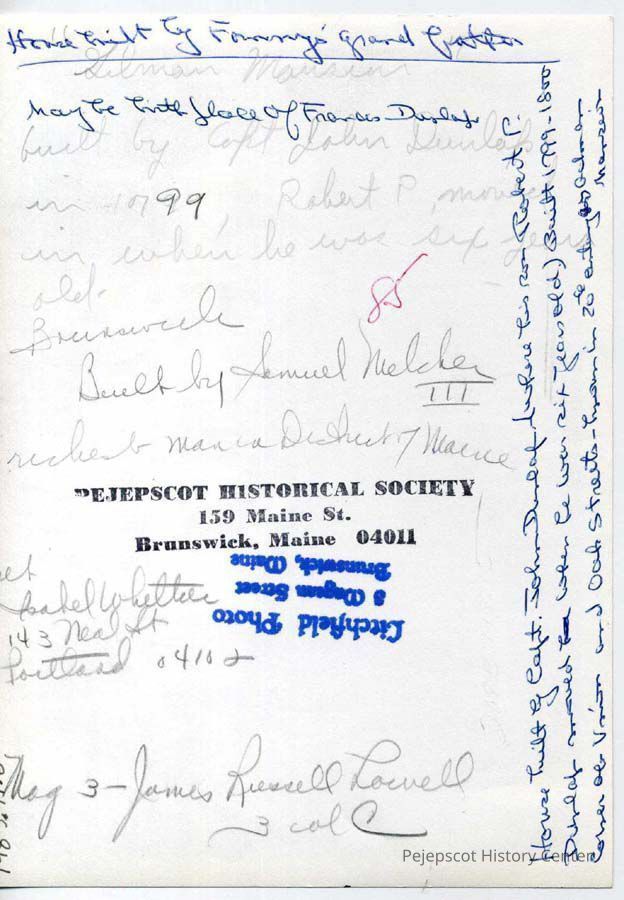 House built by Fanny's grand father
Gilman Mansion
May be birth place of Frances Dunlap
built by Capt John Dunlap
in 1799 Robert P. moved
in when he was six years
old.
Brunswick
85
Built by Samuel Melcher
III
richest man in District of Maine
PEJEPSCOT HISTORICAL SOCIETY
159 Maine St.
Brunswick, Maine 04011
Litchfield Photo
Street
Brunswick, Maine
Isabel Whittier
143 Neal St
Portland 04102
Mag 3 - James Russell Lowell
3 col C
House built by Capt. John Dunlap (where his son Robert P.
Dunlap moved when he was six years old) Built 1799-1800
Corner of Union and Oak Streets - known in 20th century as Gilman
Mansion
Pejepscot History Center